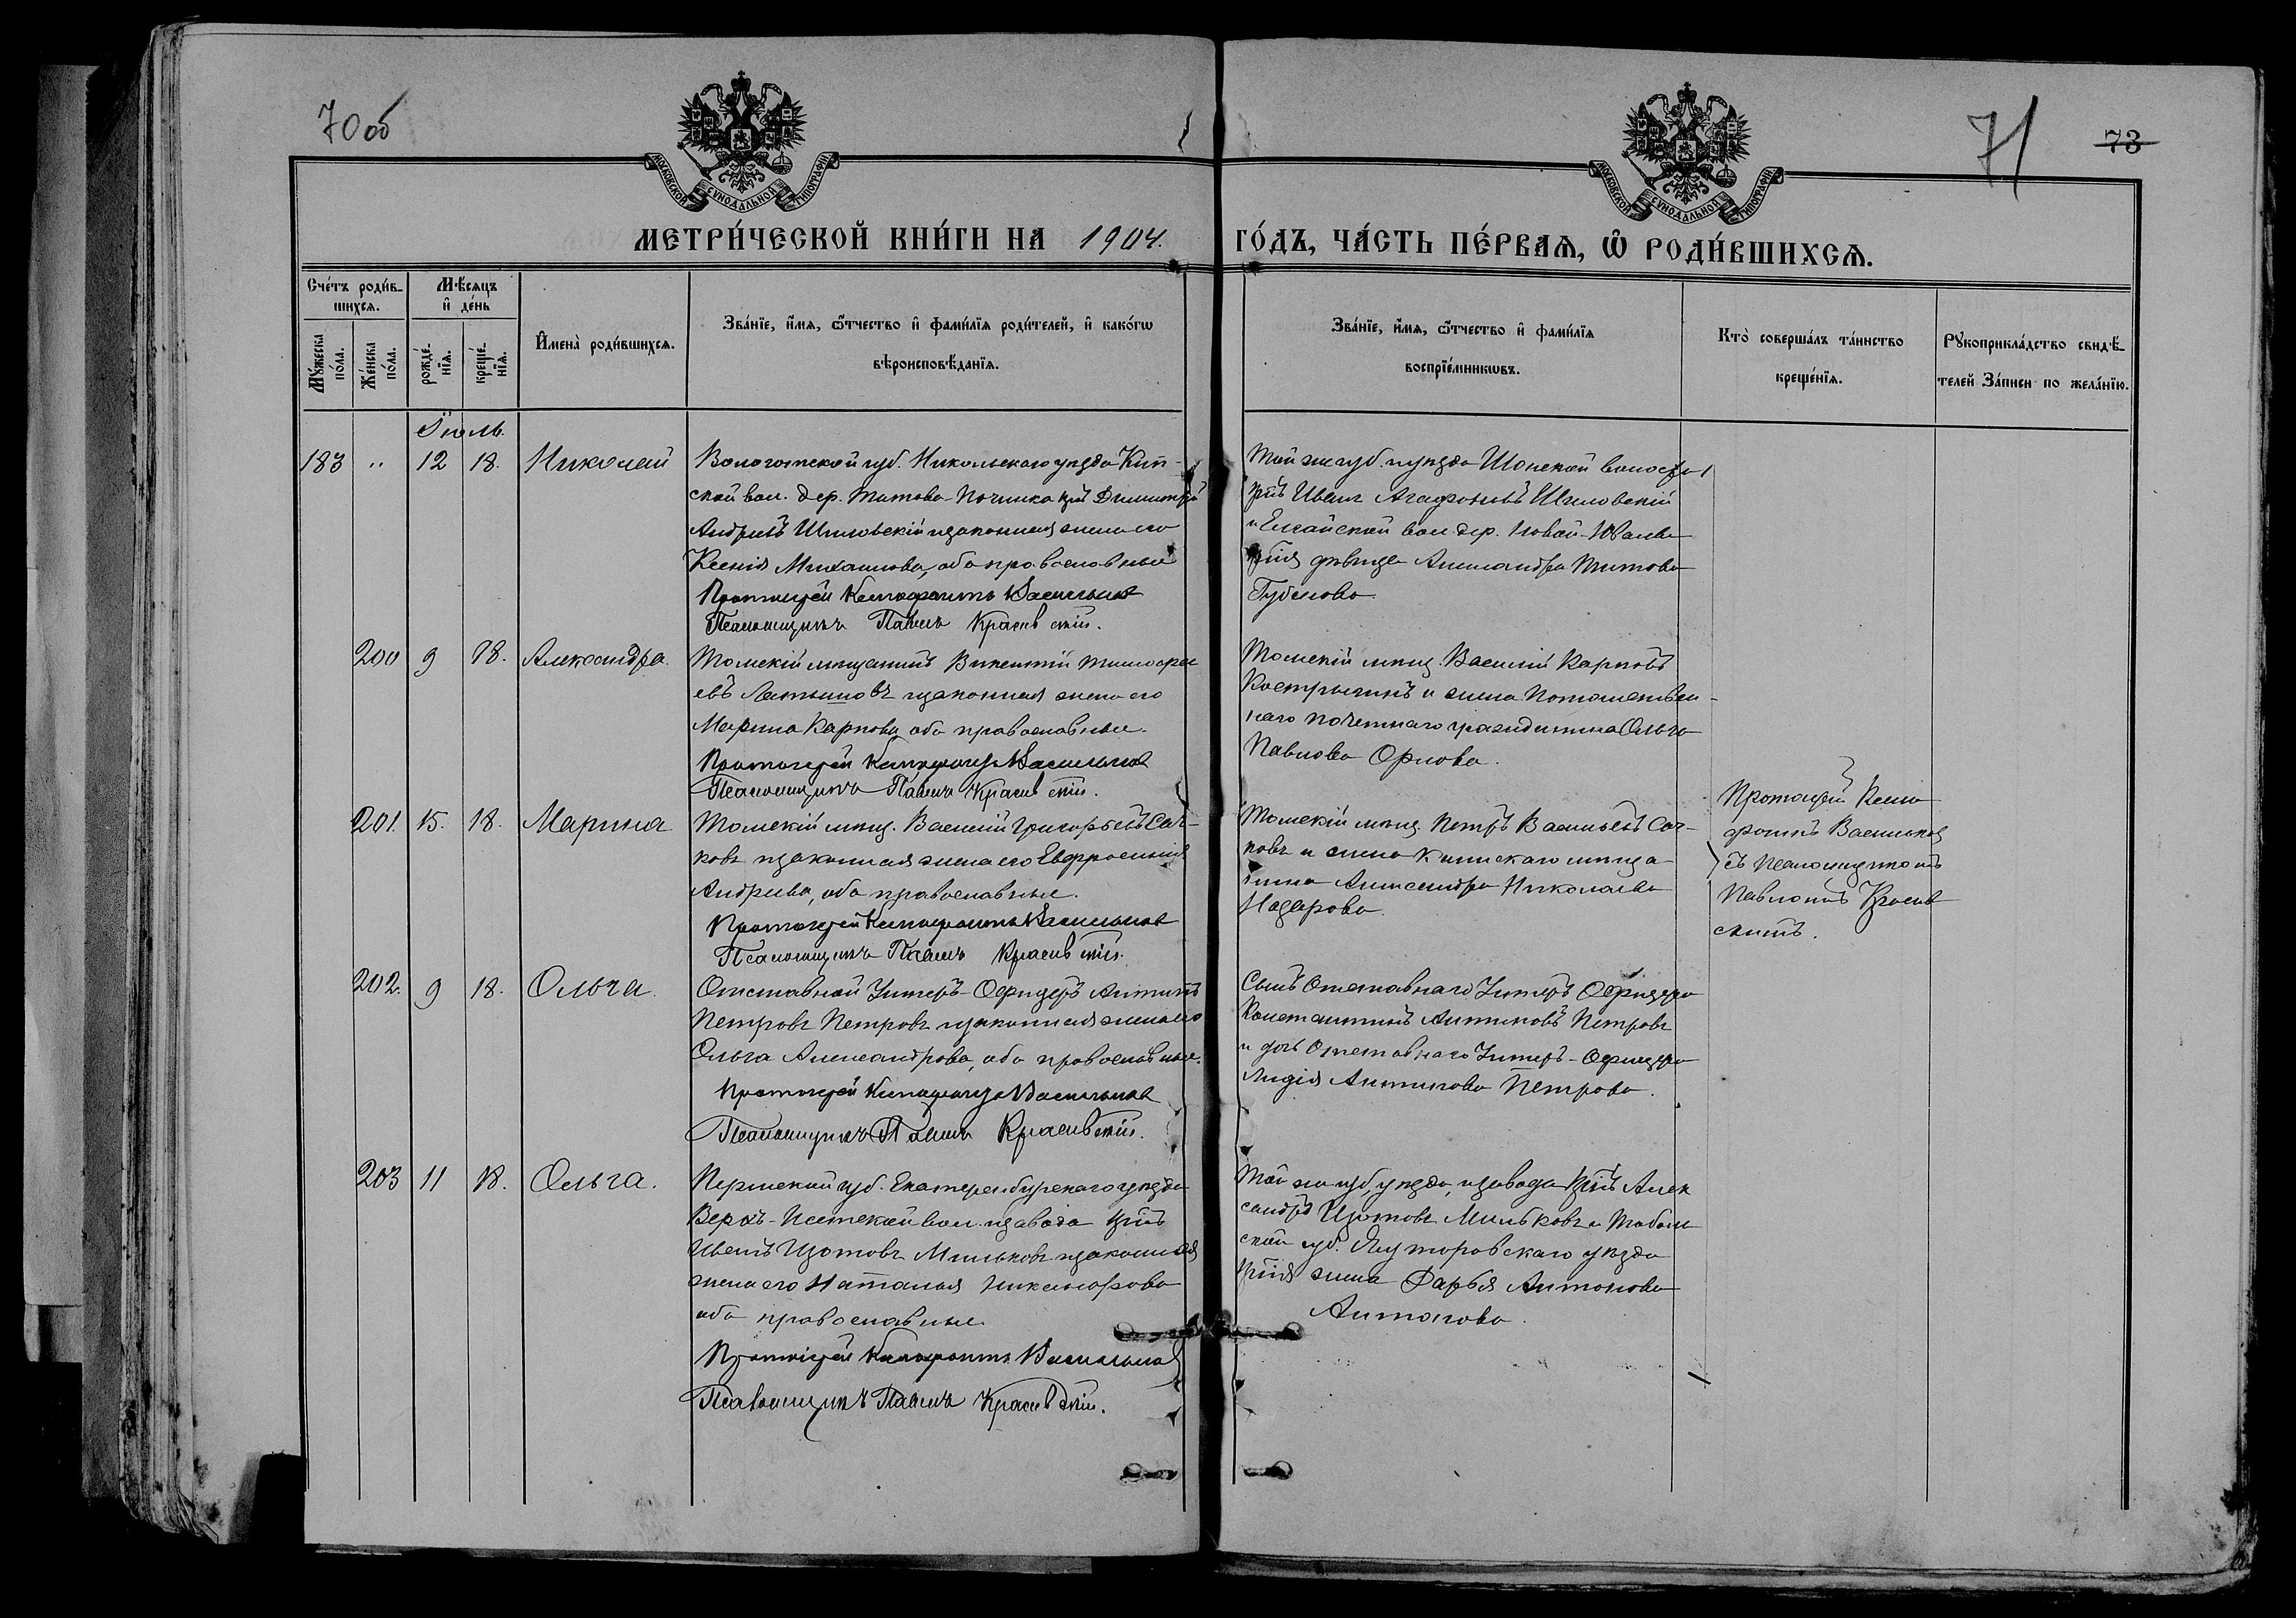 70 об
71
73
МОСКОВСКОЙ СѴНОДАЛЬНОЙ ТИПОГРАФІИ
МОСКОВСКОЙ СѴНОДАЛЬНОЙ ТИПОГРАФІИ
МЕТРИ́ЧЕСКОЙ КНИ́ГИ НА 1904.
ГО́ДЪ, ЧА́СТЬ ПЕ́РВАЯ, Ѡ РОДИ́ВШИХСЯ.
Сче́тъ роди́в-
шихся.
Мꙋ́жеска по́ла.
Же́нска по́ла.
Мѣ́сяцъ
и҆ де́нь
рожде́-
нїя.
креще́-
нїя.
И҆мена̀ роди́вшихся.
Зва́нїе, и҆́мя, ѻ҆́тчество и҆ фами́лїя роди́телей, и҆ како́гѡ
вѣроисповѣ́данїя.
Зва́нїе, и҆́мя, ѻ҆́тчество и҆ фами́лїя
воспрїе́мникѡвъ.
Кто̀ соверша́лъ та́инство
креще́нїя.
Рꙋкоприкла́дство свидѣ́-
телей За́писи по жела́нїю.
Іюль.
183 " 12 18. Николай
Вологотской губ. Никольскаго уѣзда Кип-
ской вол. дер. Титова-Починка кр҃нъ Димитрій
Андреевъ Шиловскій и законная жена его
Ксенія Михаилова, оба православные
Протоіерей Ксенофонтъ Васильковъ
Псаломщикъ Павелъ Красивскій.
Той же губ. и уѣзда Шонской волости
кр҃нъ Иванъ Агафоновъ Шиловскій
и Енгайской вол. дер. Новой
кр҃ная дѣвица Александра Титова
Губинова.
200 9 18. Александра.
Томскій мѣщанинъ Викентій Тимофе-
евъ Латышовъ и законная жена его
Марина Карпова, оба православные.
Протоіерей Ксенофонтъ Васильковъ
Псаломщикъ Павелъ Красивскій.
Томскій мѣщ. Василій Карповъ
Кострыкинъ и жена Потомствен-
наго почетнаго гражданина Ольга
Павлова Орлова.
201. 15. 18. Марина
Томскій мѣщ. Василій Григорьевъ Сач-
ковъ и законная жена его Евфросинія
Андреева, оба православные.
Протоіерей Ксенофонтъ Васильковъ
Псаломщикъ Павелъ Красивскій.
Томскій мѣщ. Петръ Васильевъ Сач-
ковъ и жена Каинскаго мѣща-
нина Александра Николаева
Назарова.
Протоіерей Ксено-
фонтъ Васильковъ
съ псаломщикомъ
Павломъ Красив-
скимъ.
202. 9 18. Ольга.
Отставной Унтеръ-Офицеръ Антипъ
Петровъ Петровъ и законная жена его
Ольга Александрова, оба православные.
Протоіерей Ксенофонтъ Васильковъ
Псаломщикъ Павелъ Красивскій.
Сынъ Отставнаго Унтеръ Офицера
Константинъ Антиповъ Петровъ
и дочь Отставнаго Унтеръ-Офицера
Лидія Антипова Петрова.
203 11 18. Ольга.
Пермской губ. Екатеринбургскаго уѣзда
Верхъ-Исетской вол. и завода кр҃нъ
Иванъ Изотовъ Мильковъ и законная
жена его Наталья Никанорова
оба православные
Протоіерей Ксенофонтъ Васильковъ
Псаломщикъ Павелъ Красивскій.
Той же губ, уѣзда, и завода кр҃нъ Алек-
сандръ Изотовъ Мильковъ и Тоболь-
ской губ. Ялуторовскаго уѣзда
кр҃ная жена Дарья Антонова
Антонова.